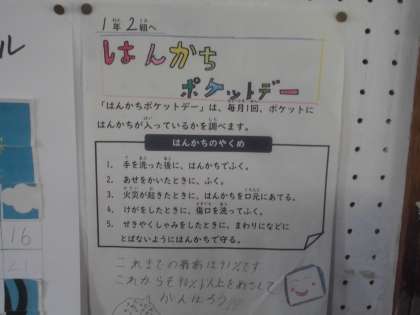 1年2組へ
はんかち
ポケットデー
「はんかちポケットデー」は、毎月1回、ポケットに
はんかちが入っているかを調べます。
はんかちのやくめ
1. 手を洗った後に、はんかちでふく。
2. あせをかいたときに、ふく。
3. 火災が起きたときに、はんかちを口元にあてる。
4. けがをしたときに、傷口を洗ってふく。
5. せきやくしゃみをしたときに、まわりなどに
とばないようにはんかちで守る。
これまでの最高は91%です
これからも90%以上をめざして
がんばろう
ル
16
21